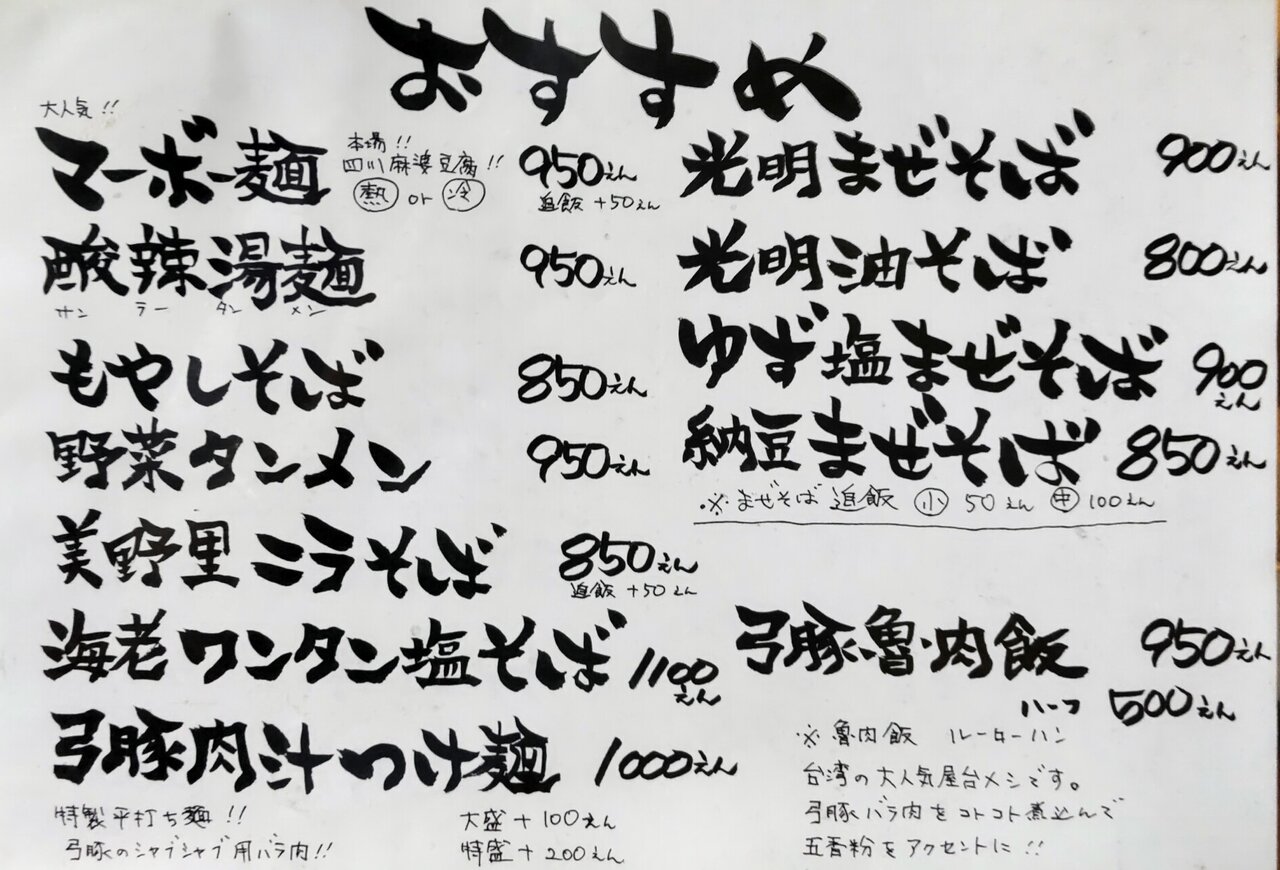 おすすめ
大人気!!
マーボー麺
本場!!
四川麻婆豆腐!!
熱 or 冷
950えん
追飯 +50えん
酸辣湯麺 950えん
サン ラー タン メン
もやしそば 850えん
野菜タンメン 950えん
美野里ニラそば 850えん
追飯 +50えん
海老ワンタン塩そば 1100えん
弓豚肉汁つけ麺 1000えん
特製平打ち麺!! 大盛+100えん
弓豚のシャブシャブ用バラ肉!! 特盛+200えん
光明まぜそば 900えん
光明油そば 800えん
ゆず塩まぜそば 900えん
納豆まぜそば 850えん
※まぜそば 追飯 小 50えん 中 100えん
弓豚魯肉飯 950えん
ハーフ 500えん
※魯肉飯 ルーローハン
台湾の大人気屋台メシです。
弓豚バラ肉をコトコト煮込んで
五香粉をアクセントに!!